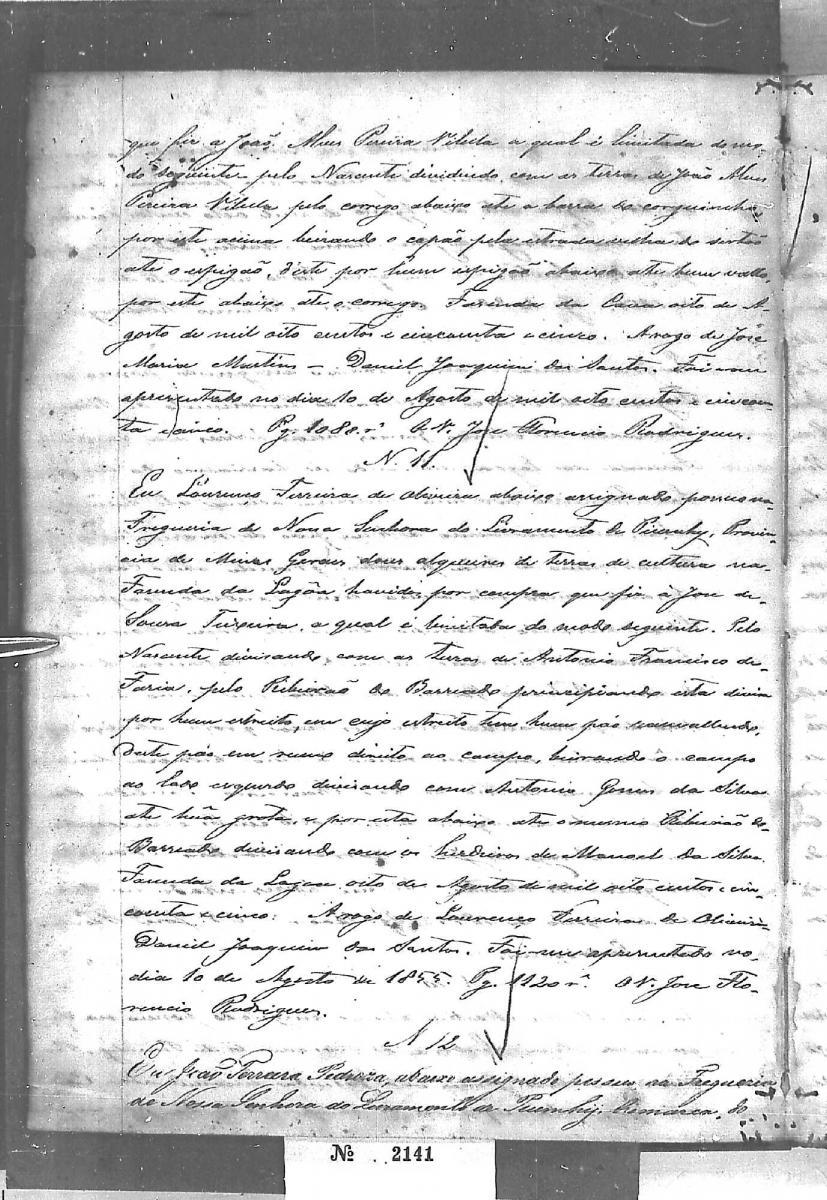 que fiz a João Alves Pereira Vilela a qual é limitada do mo-
do seguinte pelo Nascente dividindo com as terras de João Alves
Pereira Vilela pelo corrego abaixo até a barra do corguinho
por este acima beirando o capão pela estrada velha do sertão
até o espigão, deste por hum espigão abaixo até hum vallo,
por este abaixo até o corrego. Fazenda da Cava oito de A-
gosto de mil oito centos e cincoenta e cinco. A rogo de José
Maria Martins - Daniel Joaquim dos Santos. Foi-me
apresentado no dia 10 de Agosto de mil oito centos e cincoen-
ta e cinco. Pg. 1088 rs. O V. Jose Florencio Rodrigues.
N. 11
Eu Lourenco Ferreira de Oliveira abaixo assignado possuo na
Fregueria de Nossa Senhora do Livramento de Piumhy, Provin-
cia de Minas Geraes dous alqueires de terras de cultura na
Fazenda da Lagôa havidos por compra que fiz à Jose de
Souza Teixeira, a qual é limitada do modo seguinte. Pelo
Nascente divisando com as terras de Antonio Francisco de
Faria, pelo Ribeirão do Barreado principiando esta divisa
por hum estreito, em cujo estreito tem hum páo
deste páo em rumo direito ao campo, beirando o campo
ao lado esquerdo divisando com Antonio Gomes da Silva
até huã grota, e por esta abaixo até o mesmo Ribeirão do
Barreado divisando com os herdeiros de Manoel da Silva.
Fazenda da Lagoa oito de Agosto de mil oito centos e cin-
coenta e cinco. A rogo de Lourenco Ferreira de Oliveira
Daniel Joaquim dos Santos. Foi-me apresentado no
dia 10 de Agosto de 1855. Pg. 1120 rs. O V. Jose Flo-
rencio Rodrigues.
N 12
Eu João Ferreira Pedroza, abaixo assignado possuo na Fregueria
de Nossa Senhora do Livramento de Piumhy, Comarca do
№ 2141